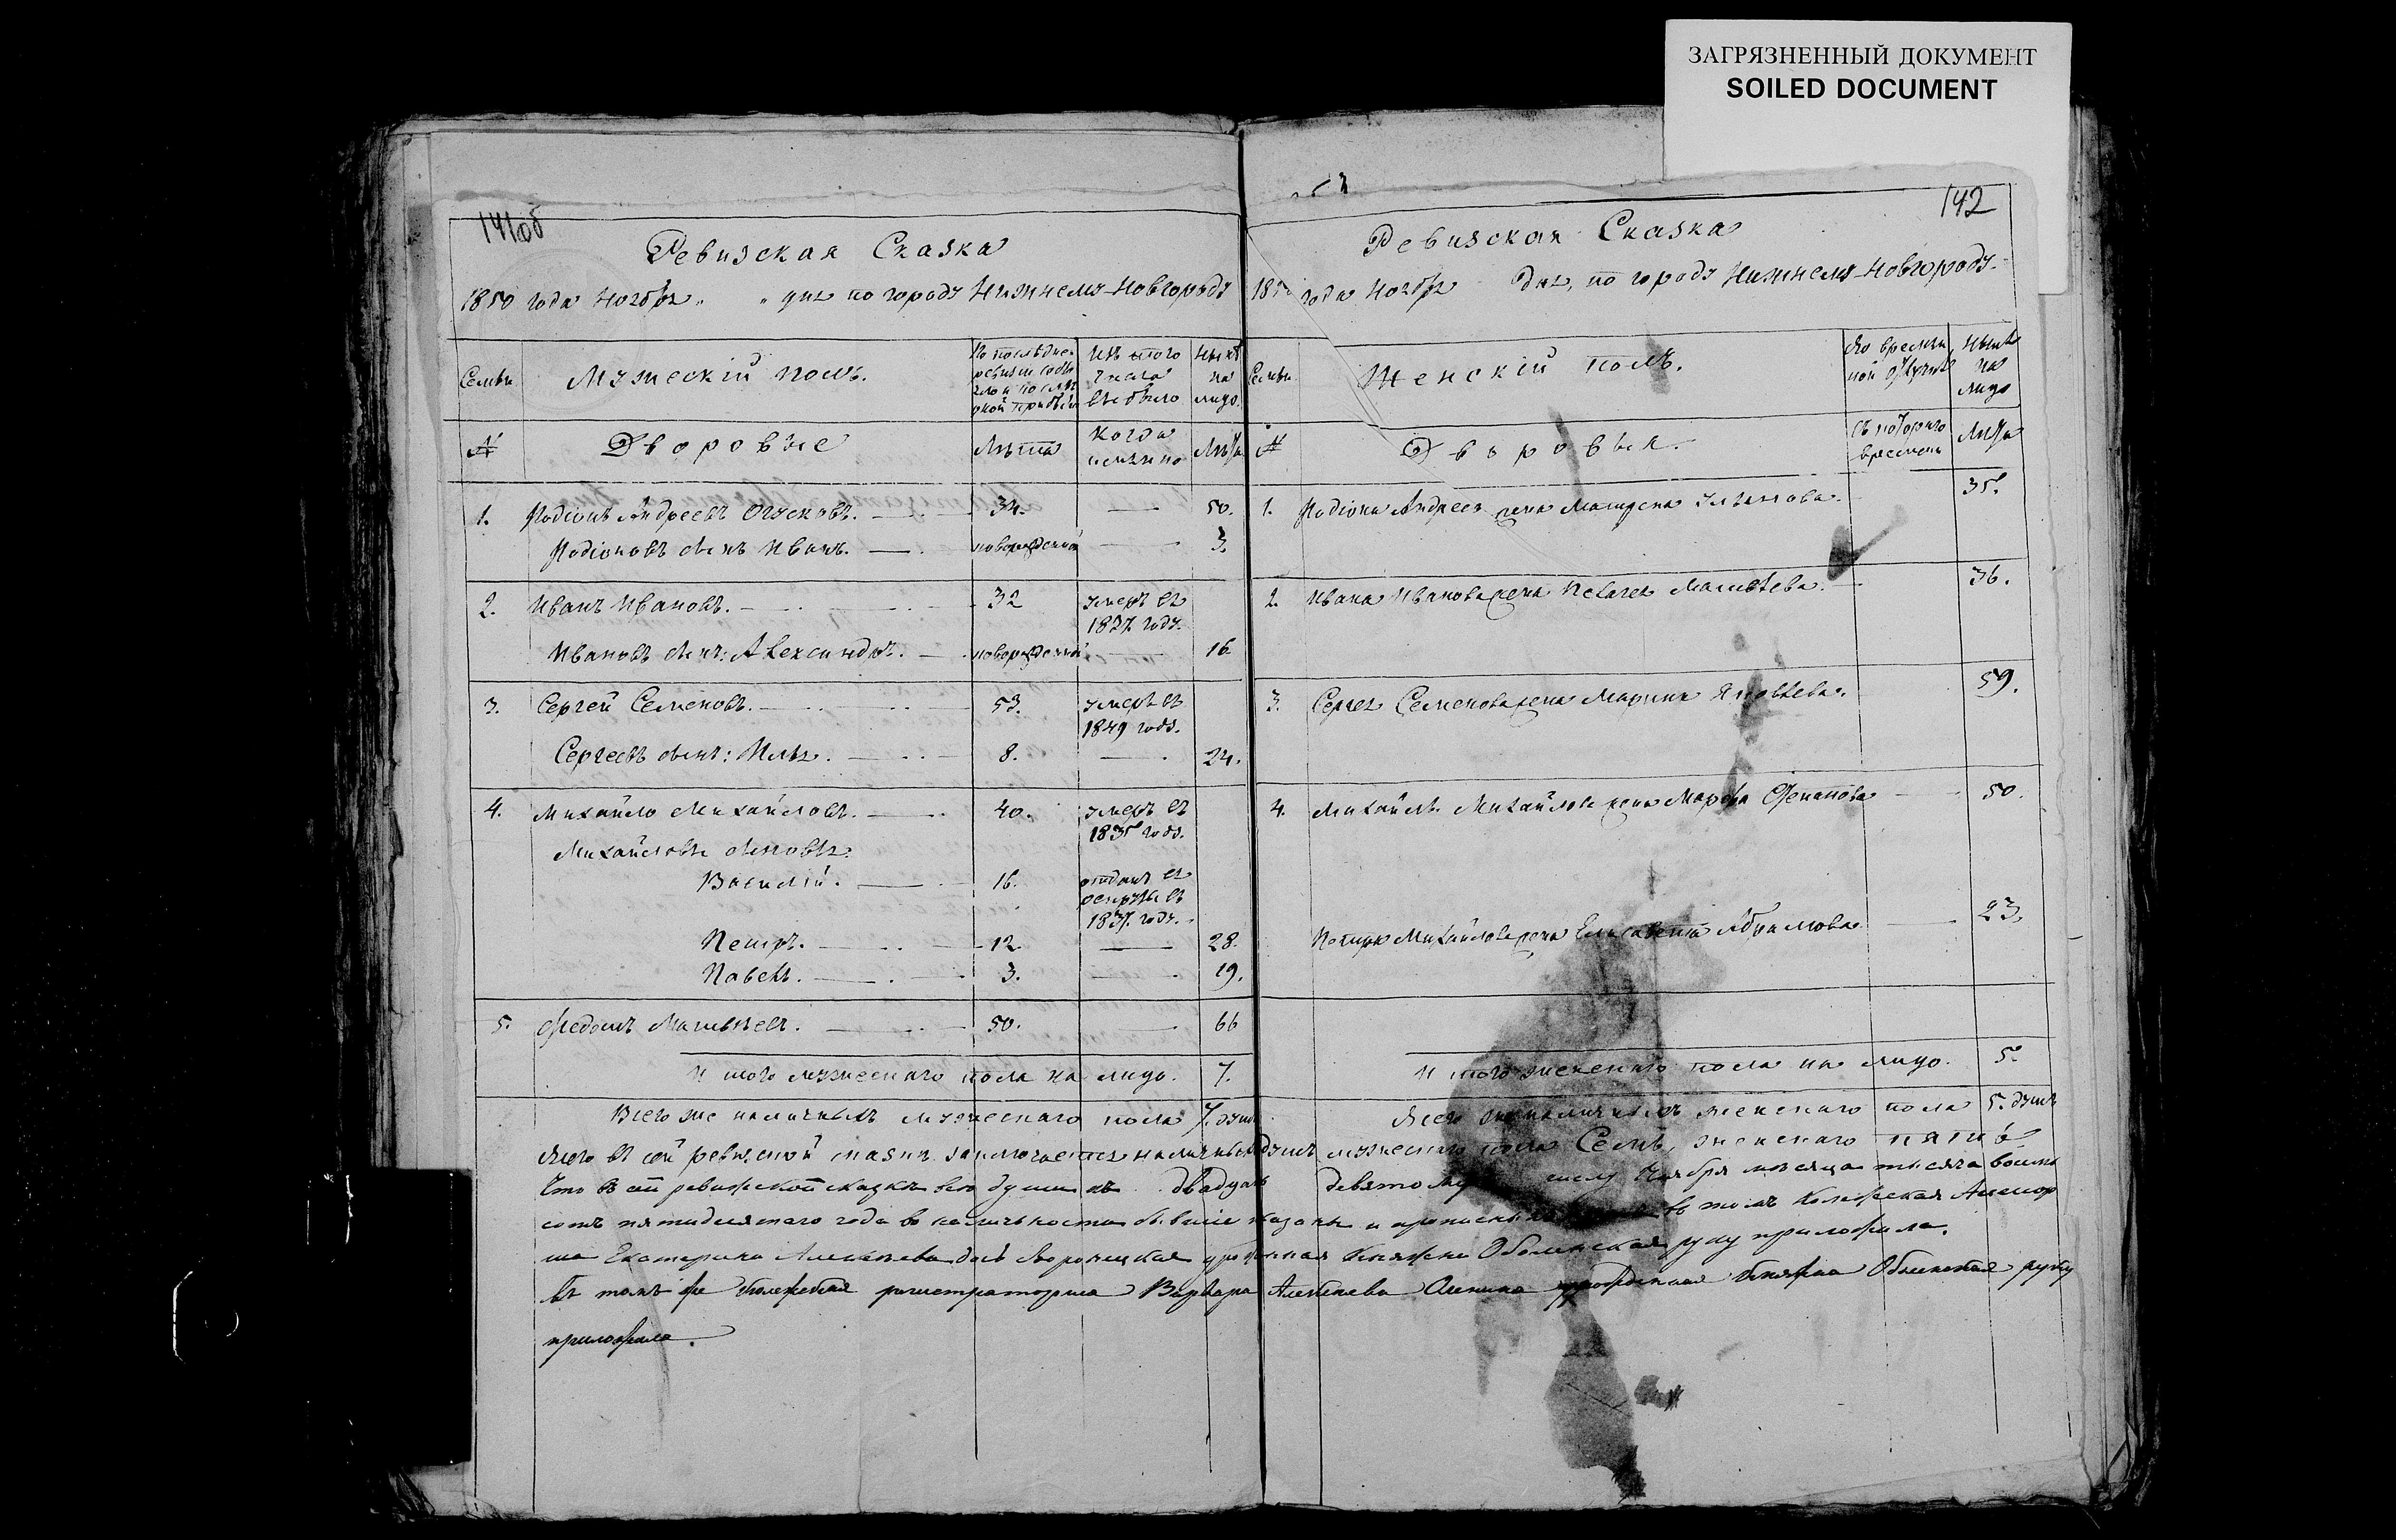 ЗАГРЯЗНЕННЫЙ ДОКУМЕНТ
SOILED DOCUMENT
141об
Ревизская Сказка
1850 года Ноября " " дня по городу Нижнему-Новгороду
Семьи
Мужескій полъ.
По последней ревизіи состояло и после оной прибыло
Изъ того числа выбыло
Ныне на лицо.
№
Дворовые
Лѣта
Когда именно
Лѣта
1. Родіонъ Андреевъ 34. 50.
Родіоновъ сынъ Иванъ. новорожденной 3.
2. Иванъ Ивановъ. 32 умеръ въ 1837. году.
Ивановъ сынъ: Александръ. новорожденной 16
3. Сергей Семеновъ. 53. умеръ въ 1849 году.
Сергеевъ сынъ: Илья. 8. 24.
4. Михайло Михайловъ. 40. умеръ въ 1835 году.
Михайловы сыновья:
Василій. 16. отданъ въ рекруты въ 1837. году.
Петръ. 12. 28.
Павелъ. 3. 19.
5. Матвѣевъ. 50. 66
Итого мужескаго пола на лицо. 7.
Всего же наличныхъ мужескаго пола 7. душъ
142
Ревизская Сказка
18 года Ноября дня, по городу Нижнему-Новгороду.
Семьи
Женскій полъ.
Во временной отлучке
Ныне на лицо
№
Дворовыя.
Съ котораго времени
Лѣта
1. Родіона Андреева жена Матрена Ульянова. 35.
2. Ивана Иванова жена Пелагея Матвѣева. 36.
3. Сергея Семенова жена Марина Яковлева. 59.
4. Михайлы Михайлова жена Марфа Степанова 50.
Петра Михайлова жена Елисавета Абрамова 23.
Итого женскаго пола на лицо. 5.
Всего же наличныхъ женскаго пола 5. душъ
Всего въ сей ревизской сказке заключается наличныхъ душъ мужескаго пола Семь, женскаго пять
Что въ сей ревижской сказке все души къ двадцать девятому числу Ноября месяца тысяча восемь
сотъ пятидесятаго года в наличности бывшие показаны и прописных въ томъ Колежская Ассесор
ша Екатерина Алексѣева дочь урожденная Княжна Оболенская руку приложила.
Въ томъ же Колежская регистраторша Варвара Алексѣева Оленина урожденная Княжна Оболенская руку
приложила.